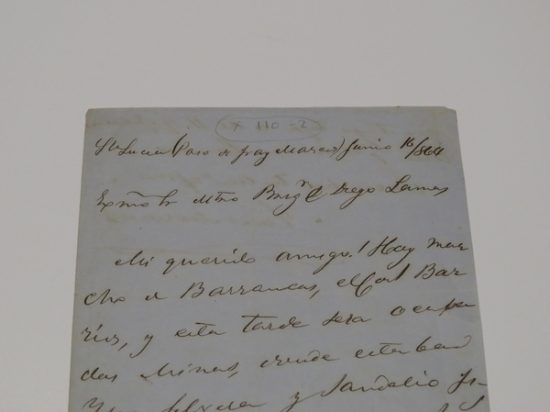 x 110-2
Sta Lucia (Paso de fray Marcos) Junio 16/864
Exmo Sr Mtro Brigr D Diego Lamas
Mi querido amigo! Hoy mar
cho a Barrancas, el Cort Bar
rios, y esta tarde sera ocupa
das Minas, donde estaban
y Sandalio